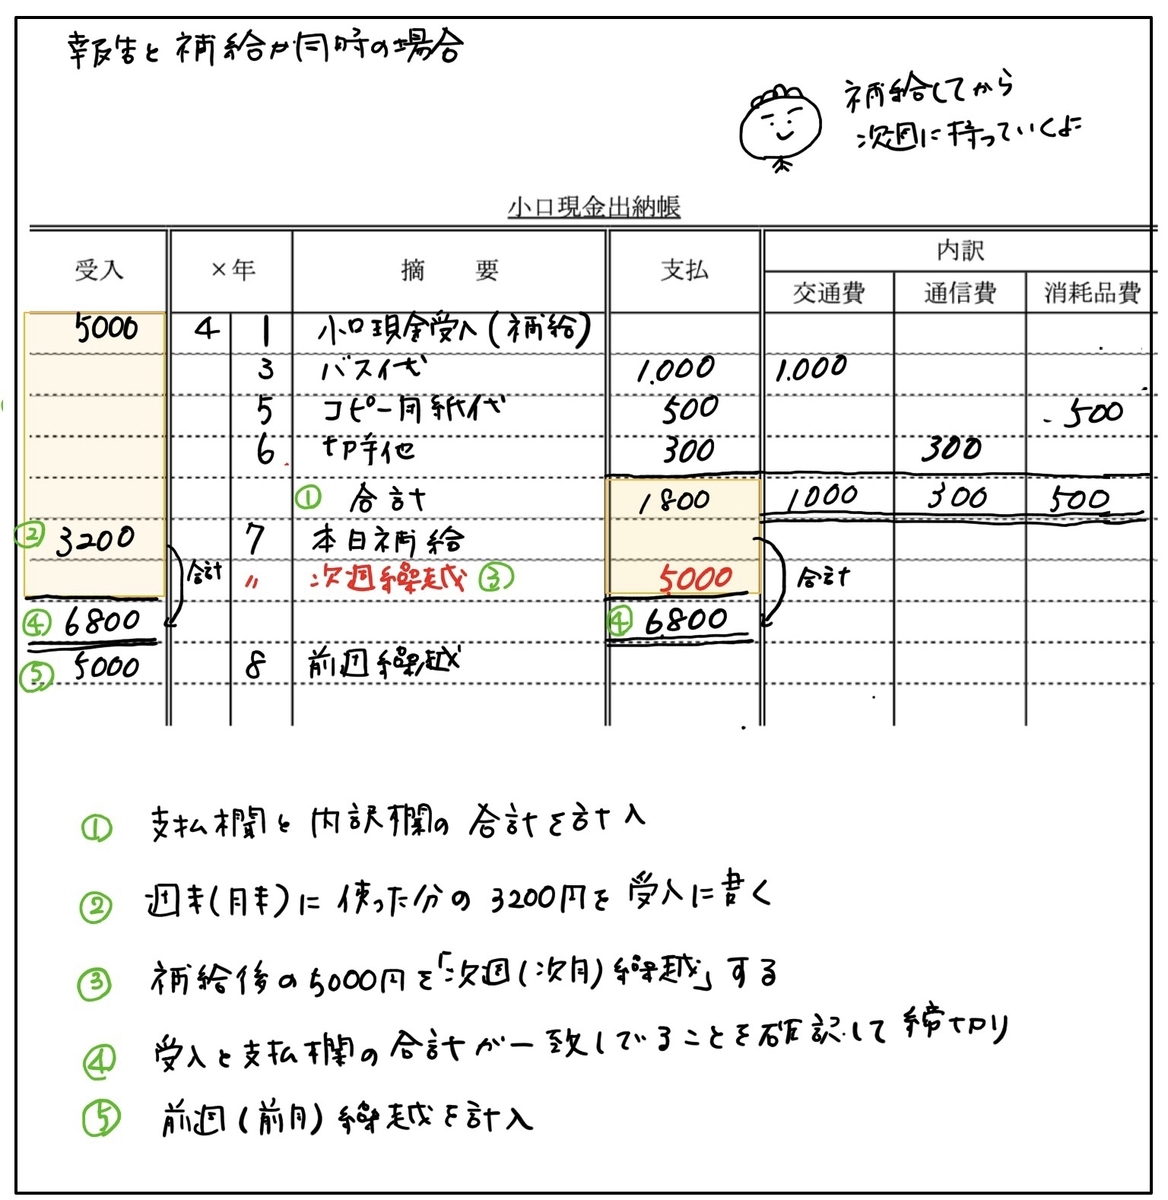 報告と補給が同時の場合
補給してから
次週に持っていくよ
小口現金出納帳
受入 ×年 摘要 支払 内訳
交通費 通信費 消耗品費
5000 4 1 小口現金受入(補給)
3 バス代 1.000 1.000
5 コピー用紙代 500 500
6 切手他 300 300
① 合計 1800 1000 300 500
② 3200 7 本日補給
合計 〃 次週繰越 ③ 5000 合計
④ 6800 ④ 6800
⑤ 5000 8 前週繰越
① 支払欄と内訳欄の合計を計入
② 週末(月末)に使った分の3200円を受入に書く
③ 補給後の5000円を「次週(次月)繰越」する
④ 受入と支払欄の合計が一致してることを確認して締切り
⑤ 前週(前月)繰越を計入